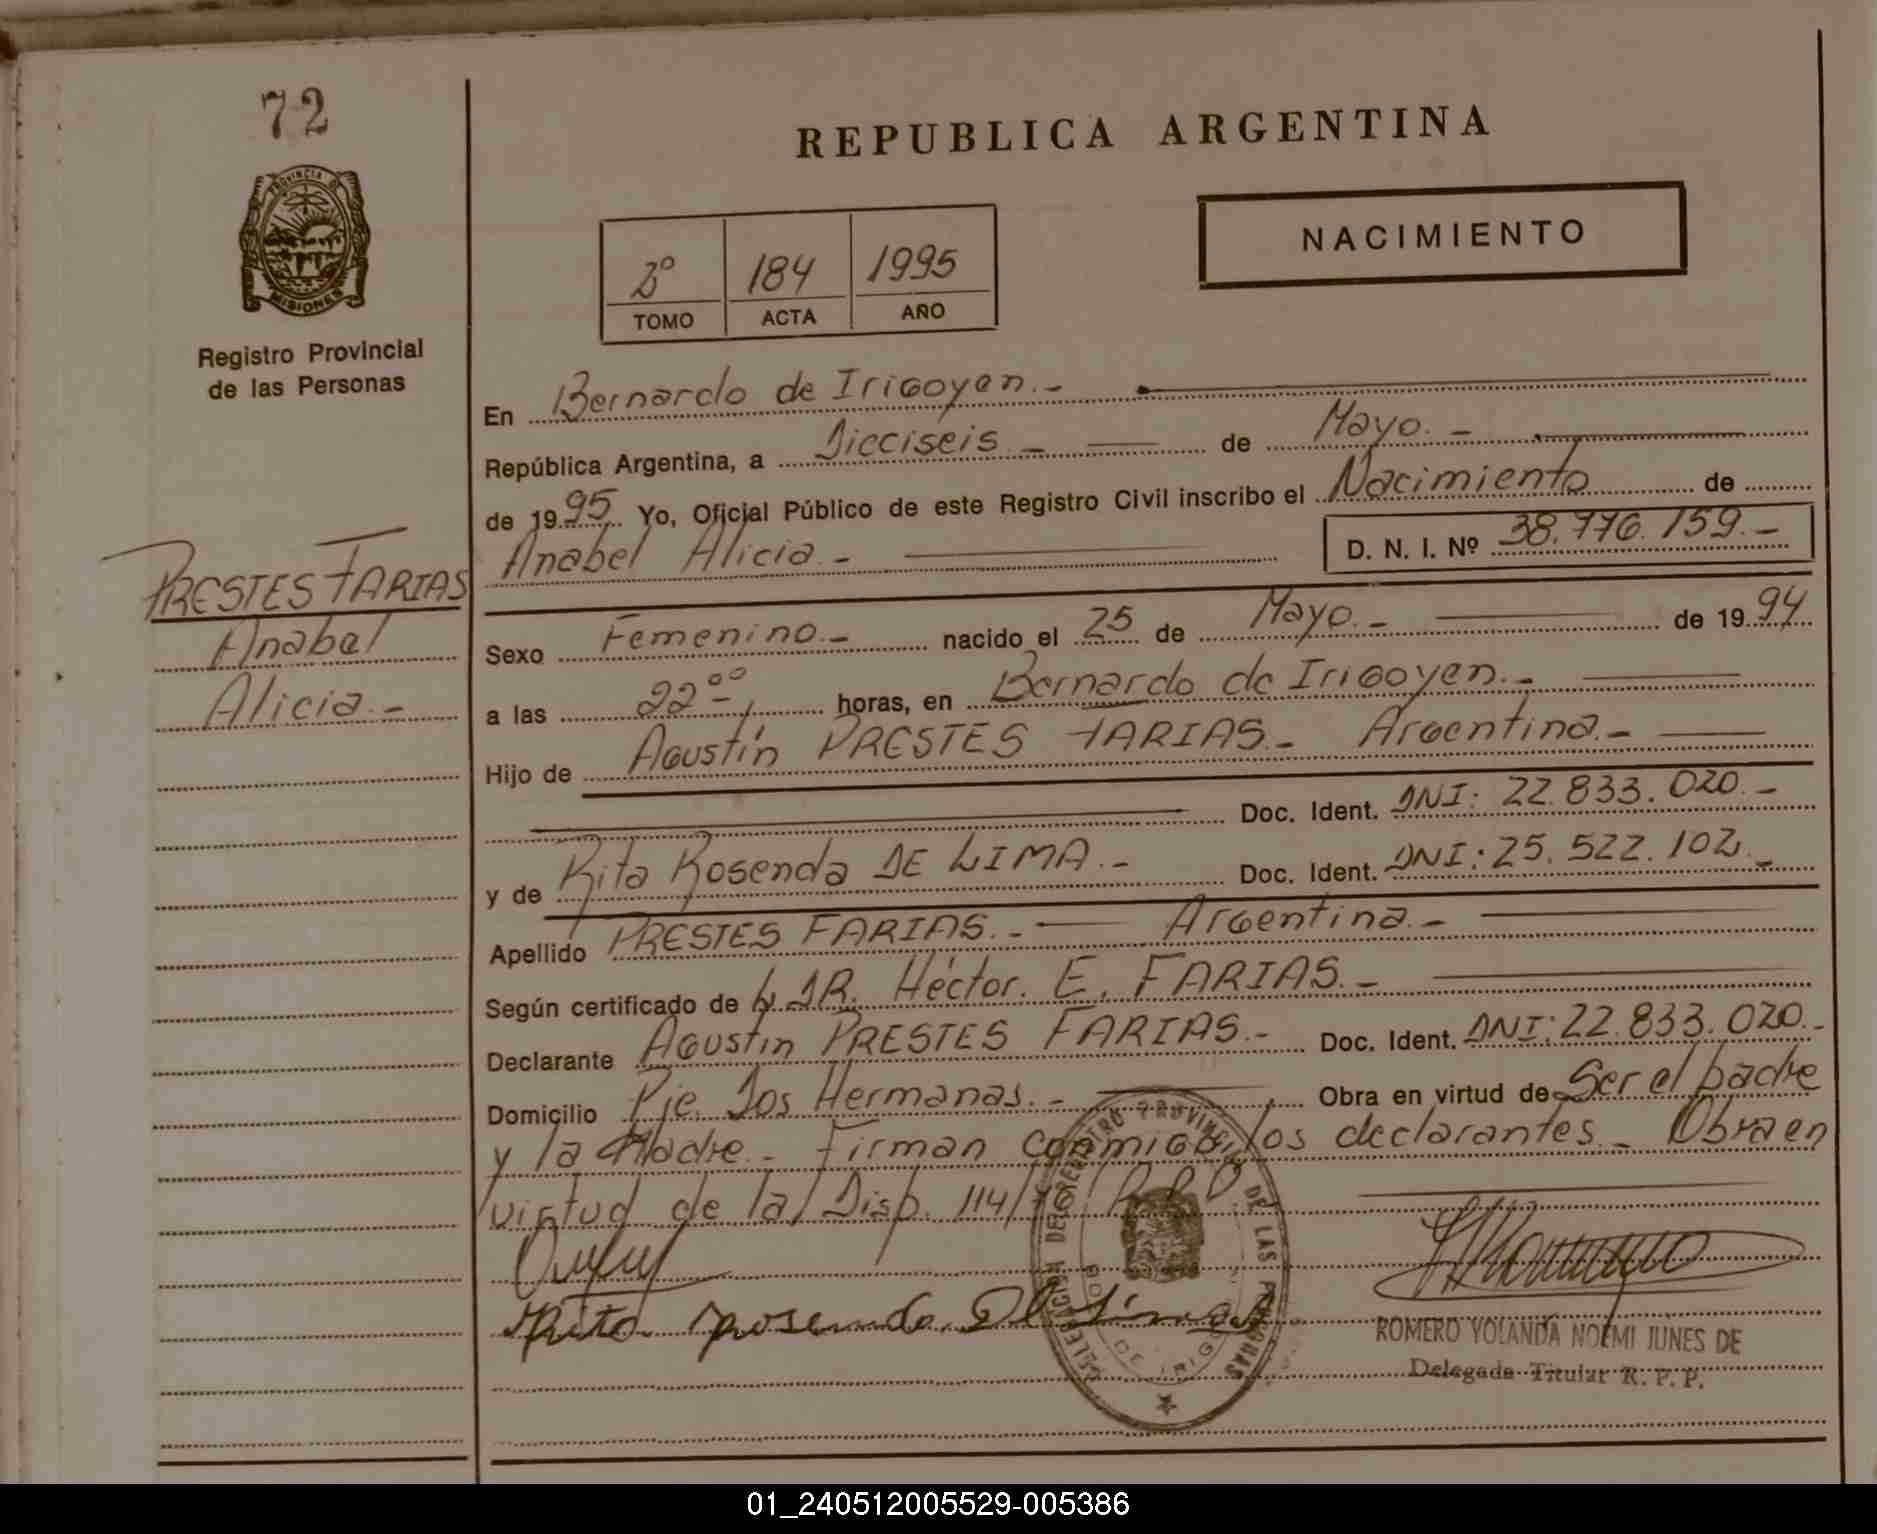 72
PROVINCIA DE
MISIONES
Registro Provincial
de las Personas
PRESTES FARIAS
Anabel
Alicia.-
REPUBLICA ARGENTINA
NACIMIENTO
2º 184 1995
TOMO ACTA AÑO
En Bernardo de Irigoyen.-
República Argentina, a Dieciseis.- de Mayo.-
de 1995. Yo, Oficial Público de este Registro Civil inscribo el Nacimiento de
Anabel Alicia.- D. N. I. Nº 38.776.159.-
Sexo Femenino.- nacido el 25 de Mayo.- de 1994
a las 22ºº horas, en Bernardo de Irigoyen.-
Hijo de Agustín PRESTES FARIAS.- Argentina.-
Doc. Ident. DNI: 22.833.020.-
y de Rita Rosenda DE LIMA.- Doc. Ident. DNI: 25.522.102.-
Apellido PRESTES FARIAS.- Argentina.-
Según certificado de L DR. Héctor. E. FARIAS.-
Declarante Agustín PRESTES FARIAS.- Doc. Ident. DNI: 22.833.020.-
Domicilio Pje. Dos Hermanas.- Obra en virtud de Ser el padre
y la Madre.- Firman conmigo los declarantes.- Obra en
virtud de la Disp. 114/
Rita Rosenda De Lima
DELEGACION DEL REGISTRO PROVINCIAL DE LAS PERSONAS
DE IRIGOYEN
ROMERO YOLANDA NOEMI JUNES DE
Delegada Titular R. P. P.
01_240512005529-005386